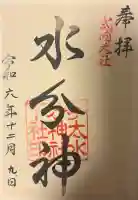 奉拝
式内大社
水分神
令和六年十二月九日